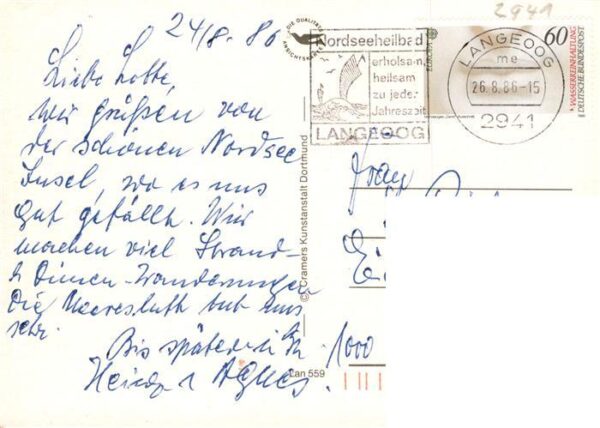 24/8. 86
Liebe Lotte,
wir grüßen von
der schönen Nordsee
Insel, wo es uns
gut gefällt. Wir
machen viel Strand-
u Dünen-Wanderungen
Die Meeresluft tut uns
sehr.
Bis später in
Heinz u Agnes.
DIE QUALITÄTS
ANSICHTSKARTE
© Cramers Kunstanstalt Dortmund
Lan 559
Nordseeheilbad
erholsam,
heilsam
zu jeder
Jahreszeit
LANGEOOG
2941
LANGEOOG
me
26.8.86-15
2941
EUROPA
60
WASSERREINHALTUNG
DEUTSCHE BUNDESPOST
Frau
1000